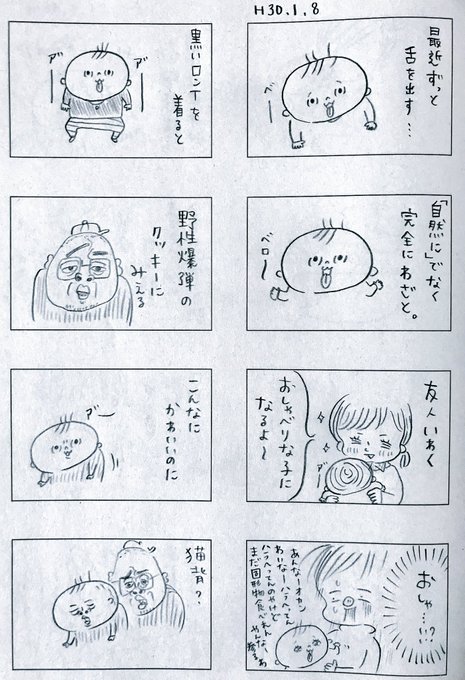 H30.1.8
最近ずっと
舌を出す…
ブー
「自然に」でなく
完全にわざと。
ベロ〜
友人いわく
おしゃべりな子に
なるよ〜
おしゃ…!?
あんなーオカン
わいなーハラへってん
ハラへってんのやけど
まだ固形物食べれんな、あ
黒いロンTを
着ると
ア゛ー
ア゛ー
野性爆弾の
クッキーに
みえる
こんなに
かわいいのに
ア゛ー
猫背?